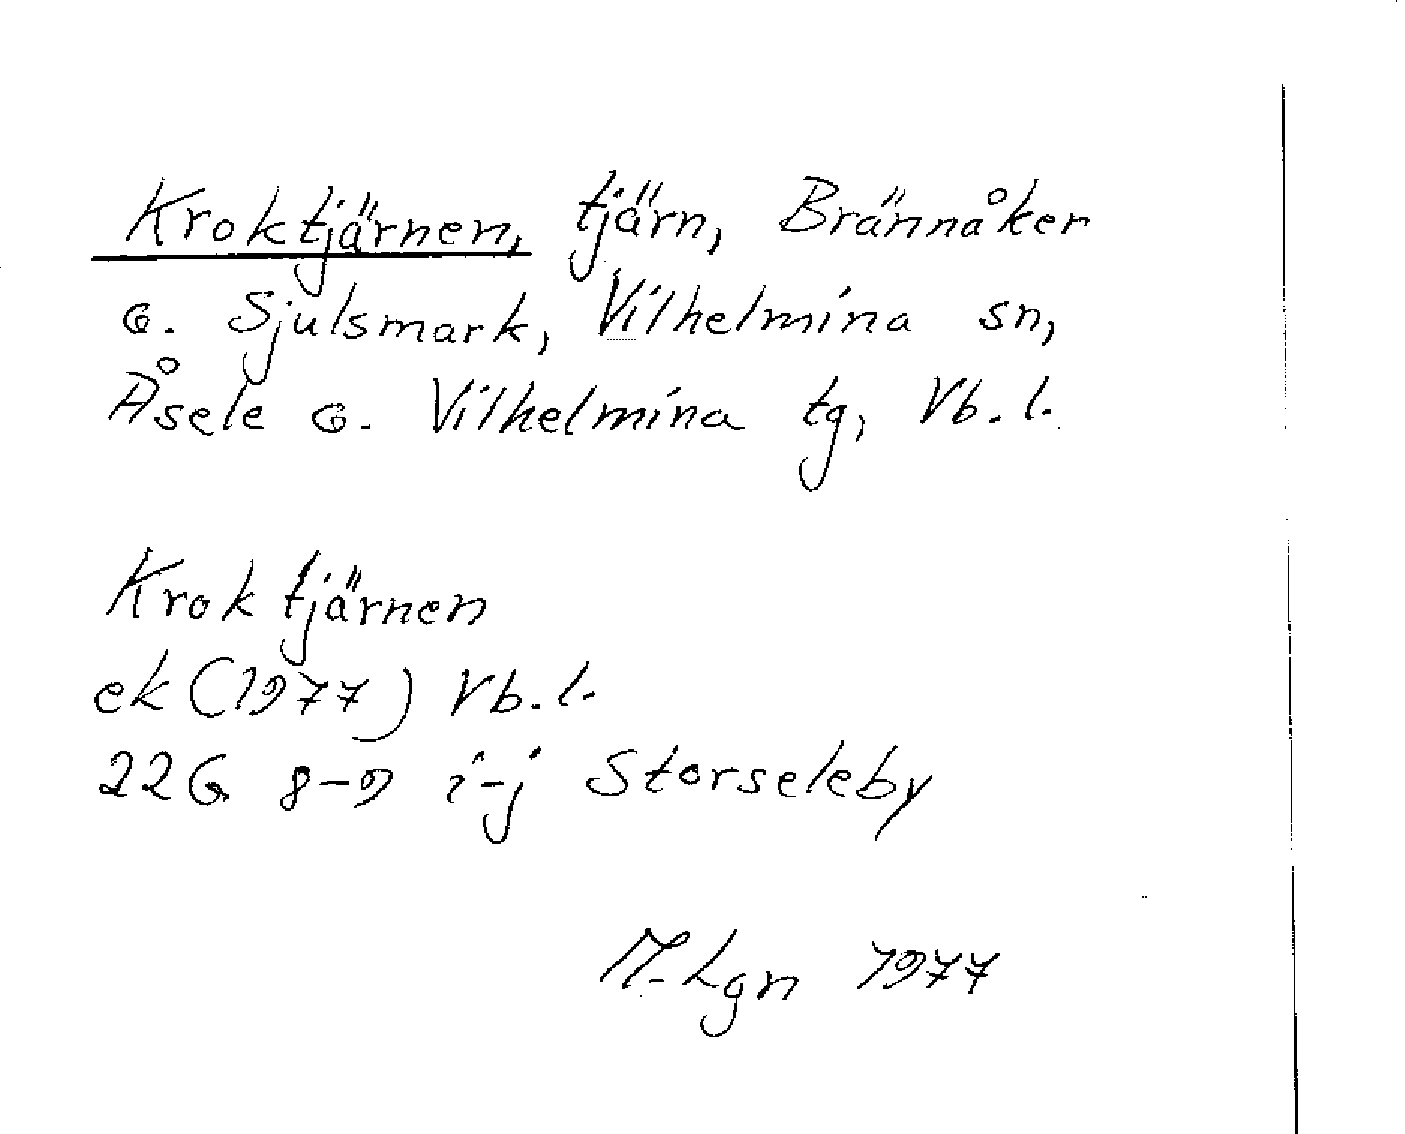 Kroktjärnen, tjärn, Brännåker
o. Sjulsmark, Vilhelmina sn,
Åsele o. Vilhelmina tg, Vb. l.
Kroktjärnen
ek (1977) Vb. l.
22G 8-9 i-j Storseleby
M. Lgn 1977